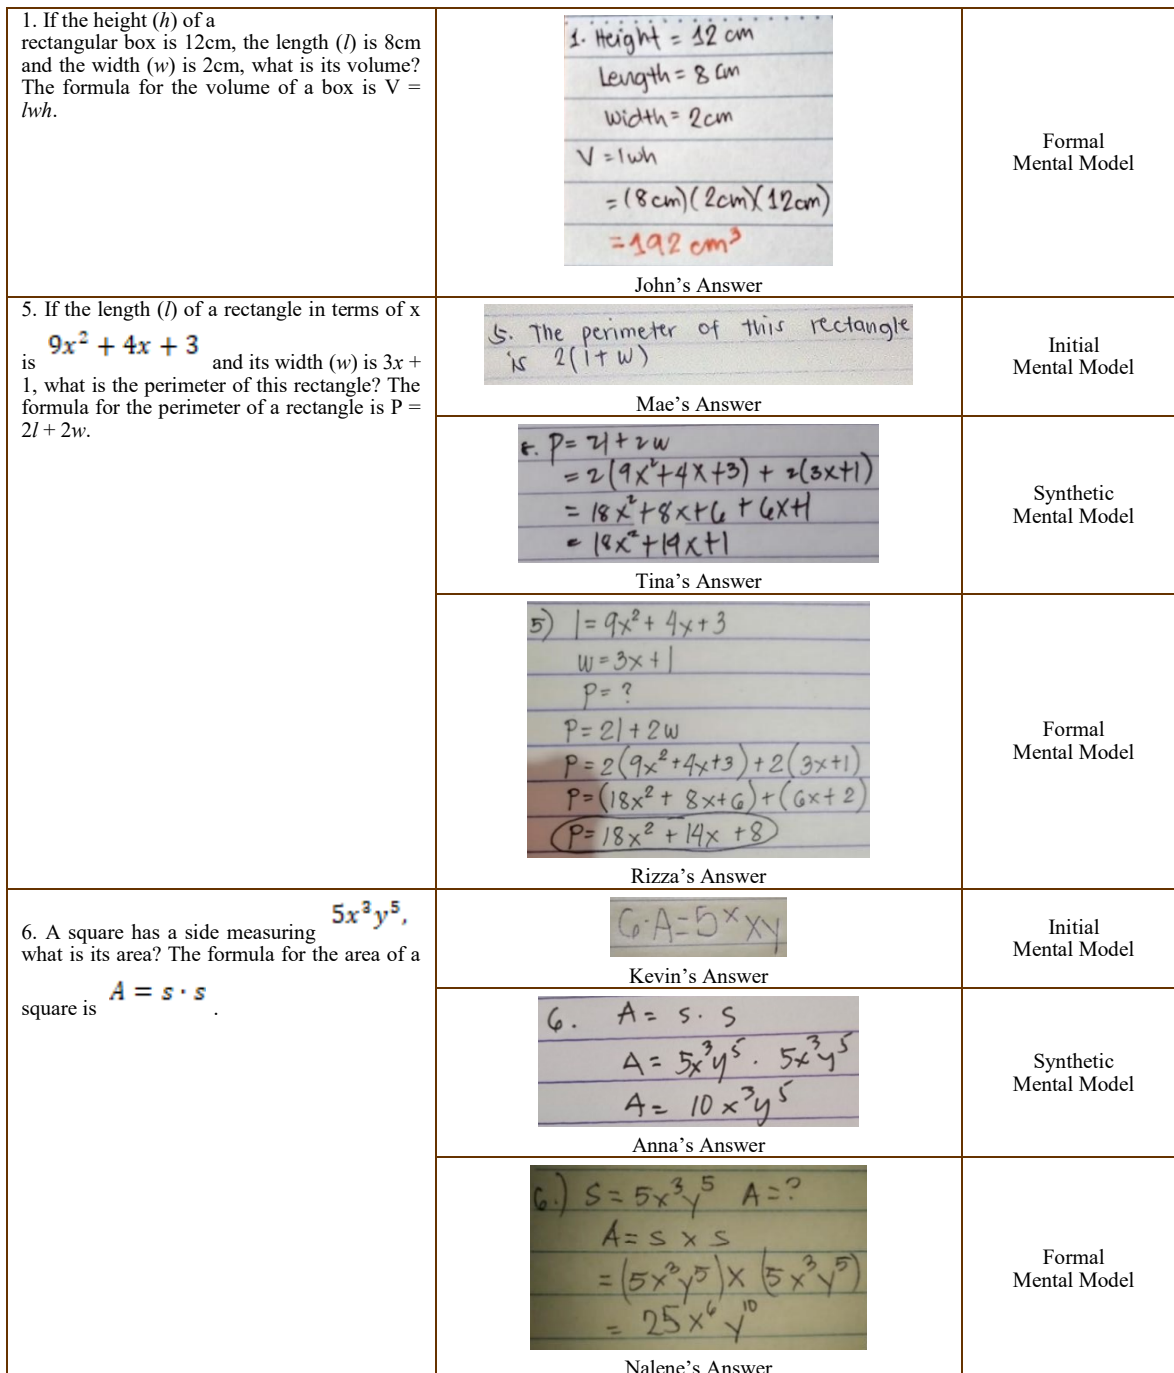 1. If the height (h) of a
rectangular box is 12cm, the length (l) is 8cm
and the width (w) is 2cm, what is its volume?
The formula for the volume of a box is V =
lwh.
1. Height = 12 cm
Length = 8 cm
Width = 2cm
V = lwh
= (8cm)(2cm)(12cm)
= 192 cm³
John's Answer
Formal
Mental Model
5. If the length (l) of a rectangle in terms of x
is 9x² + 4x + 3 and its width (w) is 3x +
1, what is the perimeter of this rectangle? The
formula for the perimeter of a rectangle is P =
2l + 2w.
5. The perimeter of this rectangle
is 2(l+w)
Mae's Answer
Initial
Mental Model
P = 2l + 2w
= 2(9x²+4x+3) + 2(3x+1)
= 18x²+8x+6 + 6x+1
= 18x²+19x+1
Tina's Answer
Synthetic
Mental Model
5) l = 9x² + 4x + 3
w = 3x + 1
P = ?
P = 2l + 2w
P = 2(9x²+4x+3) + 2(3x+1)
P = (18x² + 8x+6) + (6x+2)
P = 18x² + 14x + 8
Rizza's Answer
Formal
Mental Model
6. A square has a side measuring 5x³y⁵,
what is its area? The formula for the area of a
square is A = s · s .
6. A = 5ˣ xy
Kevin's Answer
Initial
Mental Model
6. A = s . s
A = 5x³y⁵ . 5x³y⁵
A = 10x³y⁵
Anna's Answer
Synthetic
Mental Model
6.) S = 5x³y⁵ A = ?
A = s x s
= (5x³y⁵) x (5x³y⁵)
= 25x⁶y¹⁰
Nalene's Answer
Formal
Mental Model